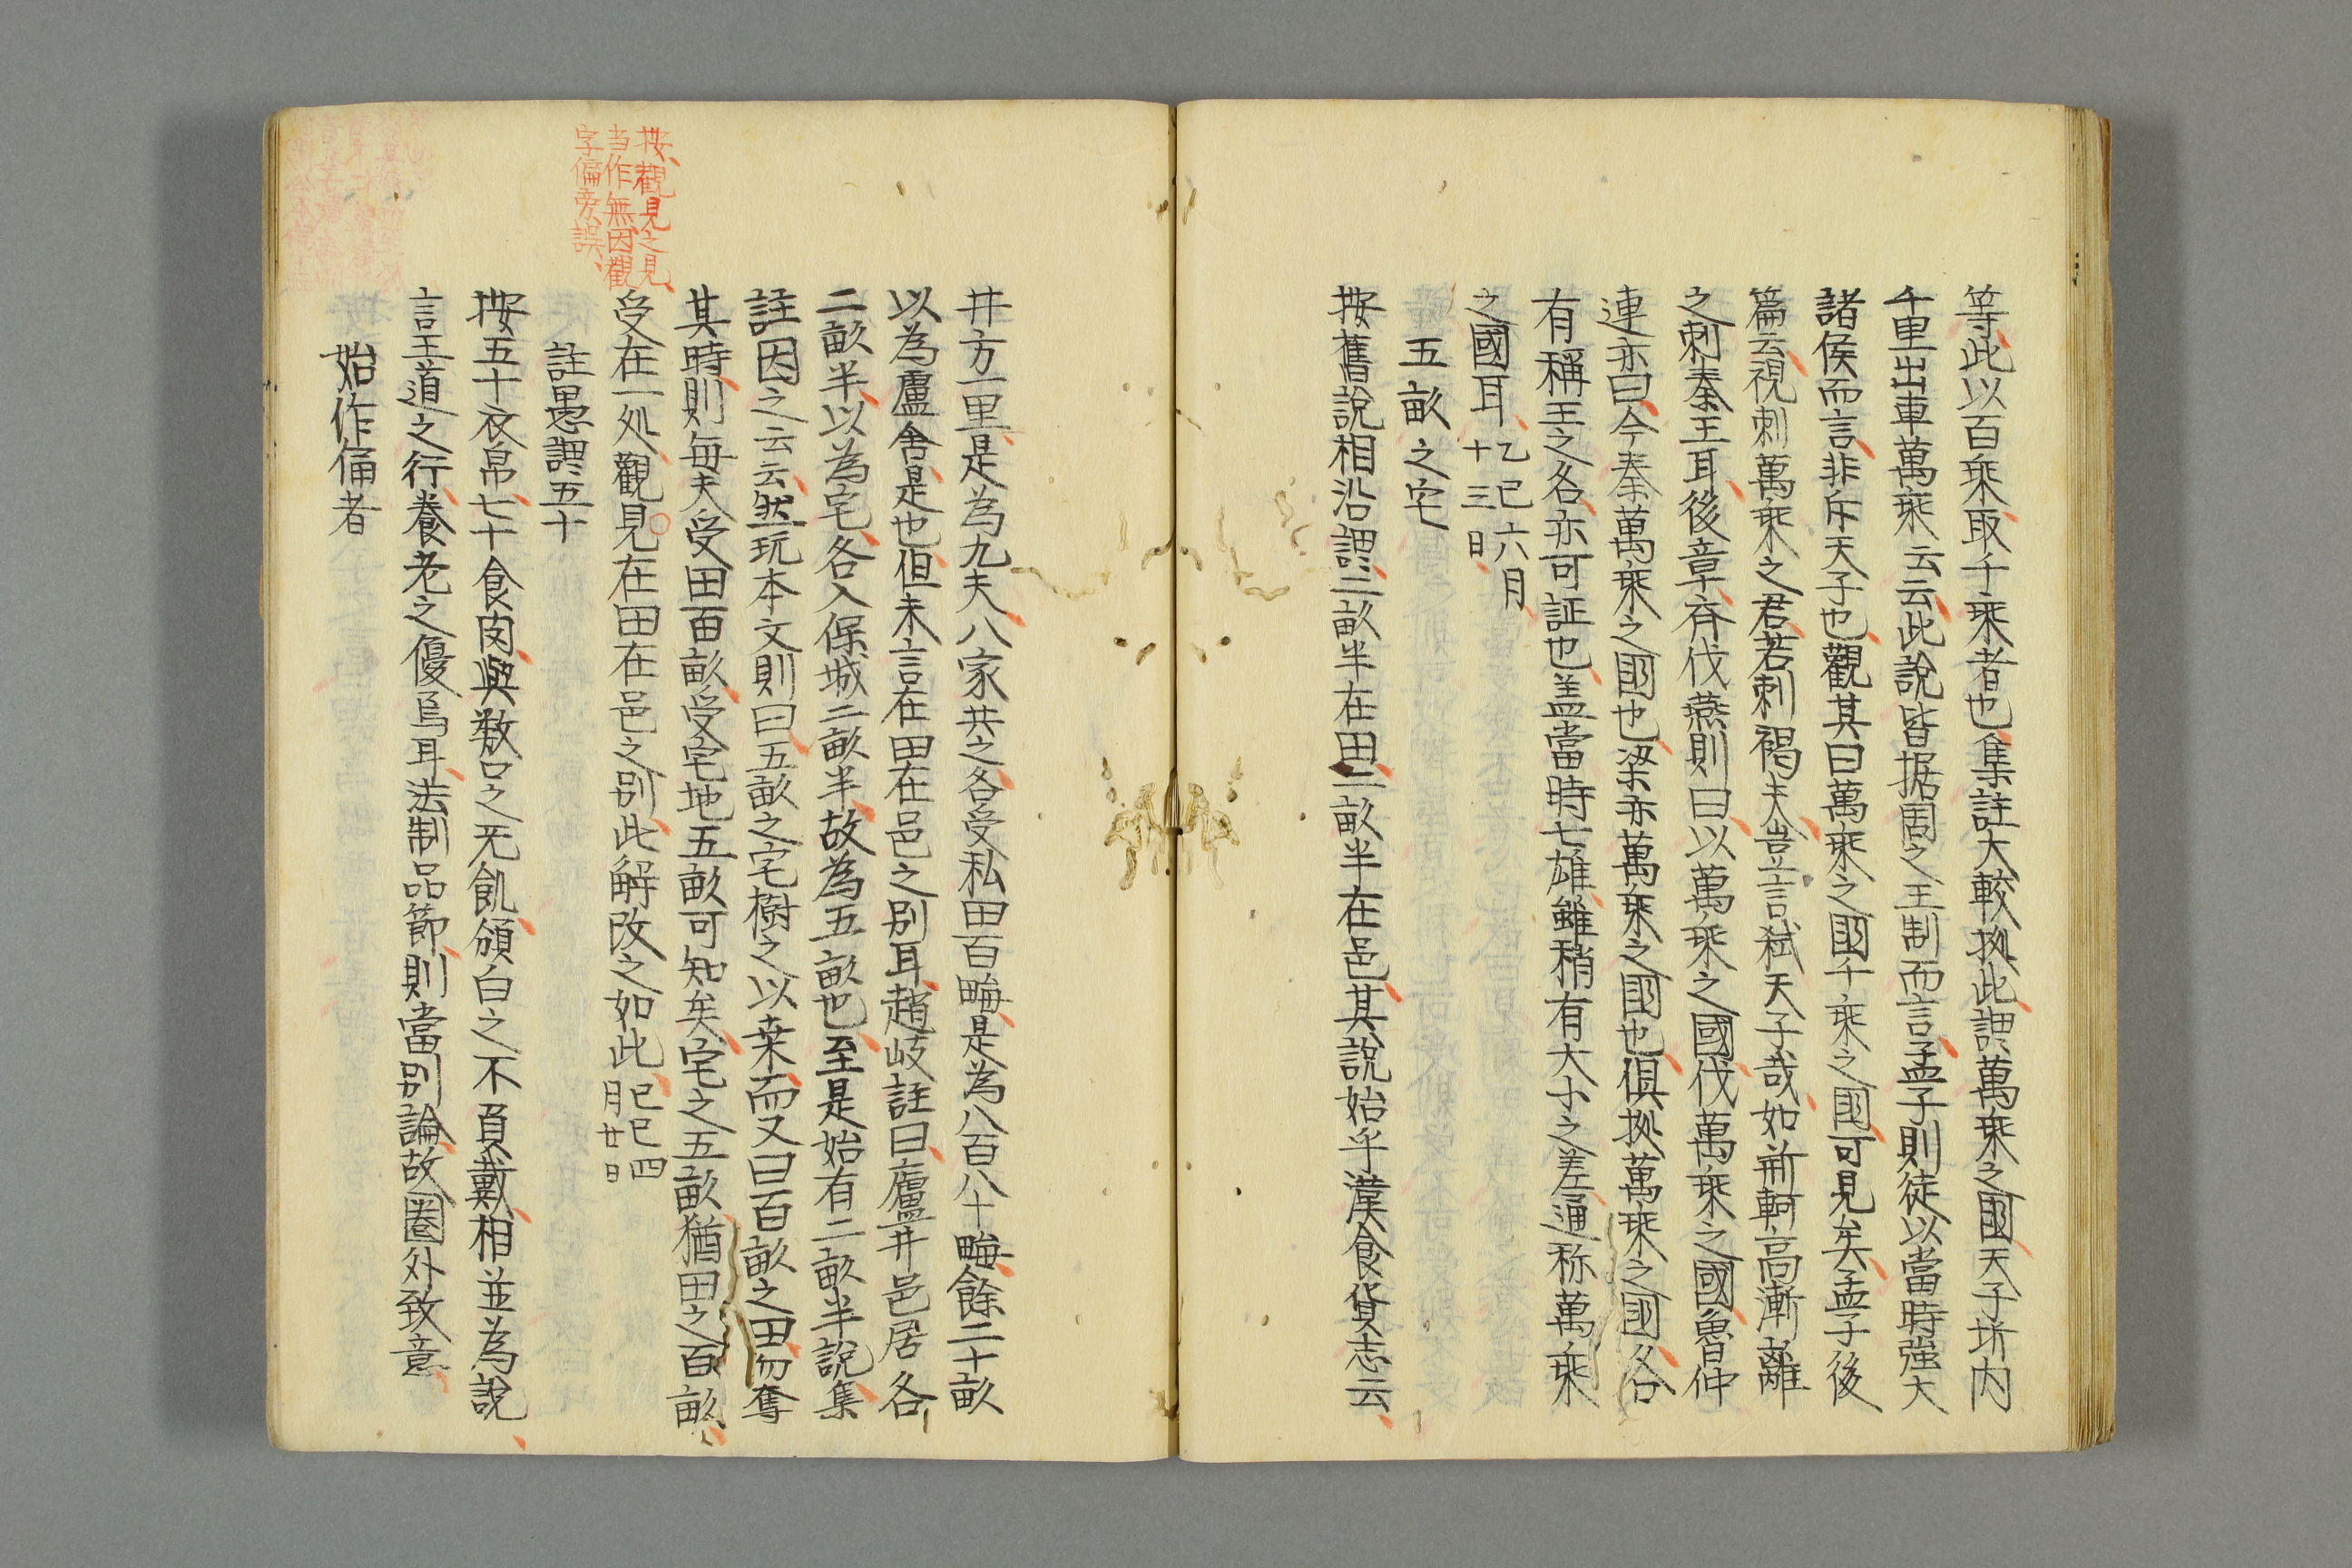 等此以百乘取千乘者也集註大較拠此謂萬乘之國天子圻内
千里出車萬乘云云此說皆据周之王制而言孟子則徒以當時強大
諸侯而言非斥天子也觀其曰萬乘之国千乘之国可見矣孟子後
篇云視刺萬乘之君若刺褐夫豈言弑天子哉如荊軻高漸離
之刺秦王耳後章齊伐燕則曰以萬乘之國伐萬乘之國魯仲
連亦曰今秦萬乘之国也梁亦萬乘之国也俱拠萬乘之国各
有稱王之名亦可証也盖當時七雄雖稍有大小之差通称萬乘
之國耳乙巳六月
十三日
五畝之宅
按舊說相沿謂二畝半在田二畝半在邑其說始乎漢食貨志云
井方一里是為九夫八家共之各受私田百畮是為八百八十畮餘二十畝
以為廬舍是也但未言在田在邑之別耳趙岐註曰廬井邑居各
二畝半以為宅各入保城二畝半故為五畝也至是始有二畝半說集
註因之云云然玩本文則曰五畝之宅樹之以桒而又曰百畝之田勿奪
其時則每夫受田百畝受宅地五畝可知矣宅之五畝猶田之百畝
受在一処觀見在田在邑之別此解改之如此己巳四
月廿日
按觀見之見
当作無因觀
字偏旁誤
註愚謂五十
按五十衣帛七十食肉與数口之无飢頒白之不負戴相並為說
言王道之行養老之優焉耳法制品節則當別論故圈外致意
始作俑者